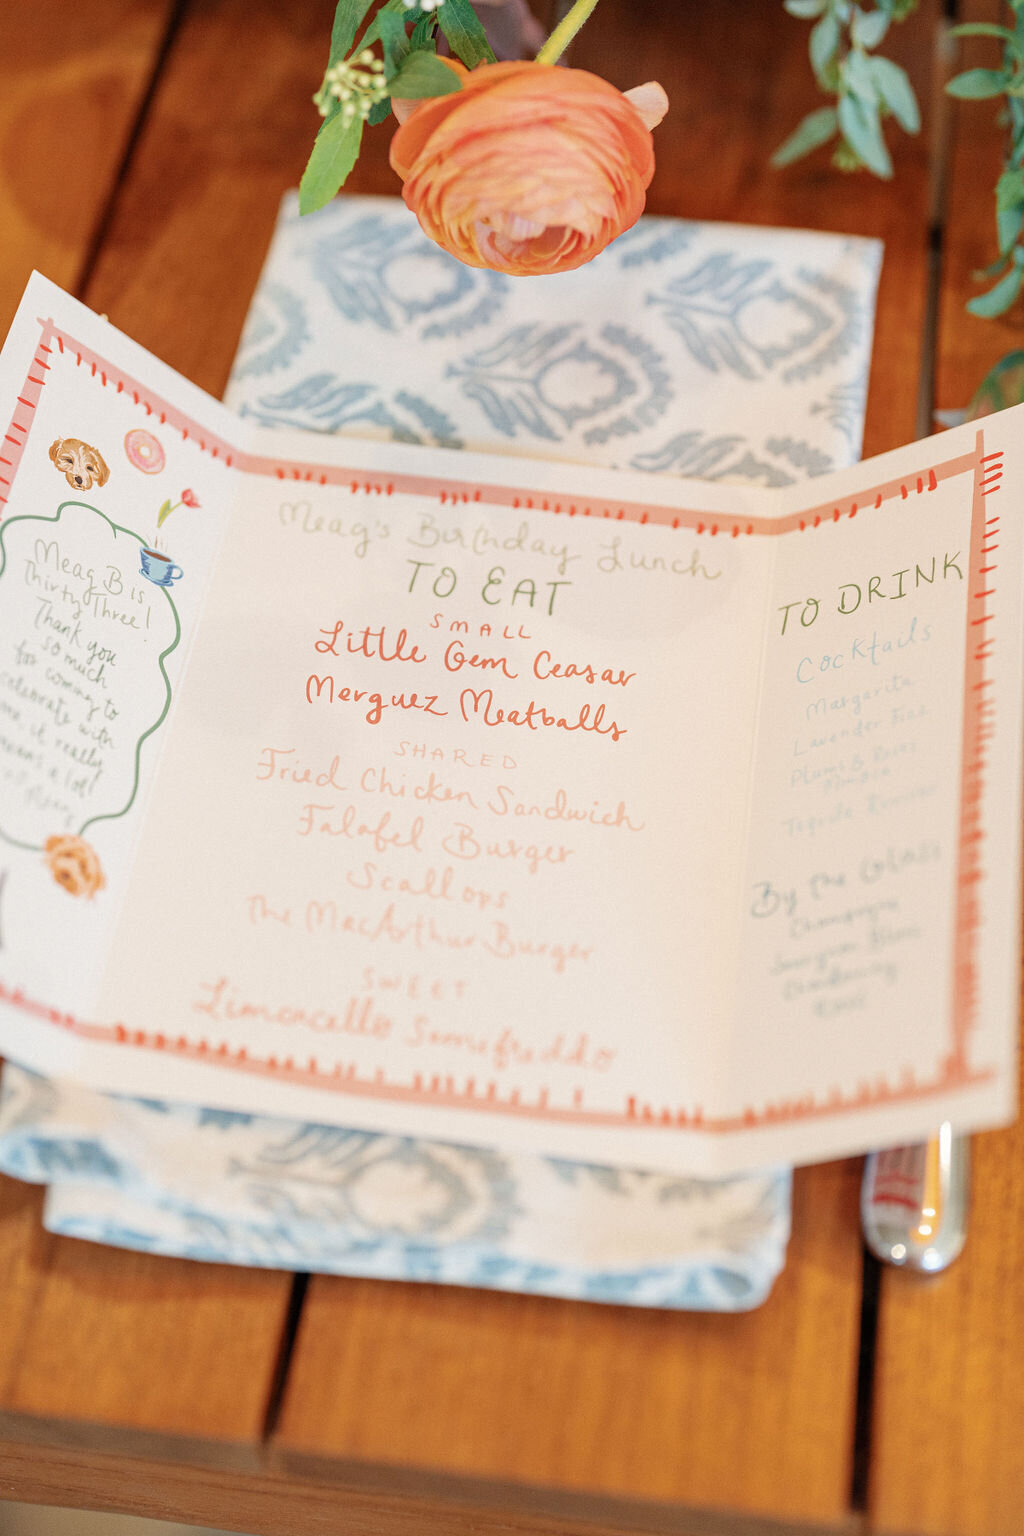 Meag B is
Thirty Three!
Thank you
so much
for coming to
celebrate with
me, it really
means a lot!
Meag's Birthday Lunch
TO EAT
SMALL
Little Gem Ceasar
Merguez Meatballs
SHARED
Fried Chicken Sandwich
Falafel Burger
Scallops
The MacArthur Burger
SWEET
Limoncello Semefreddo
TO DRINK
Cocktails
Margarita
Lavender Fizz
By the Glass
Champagne